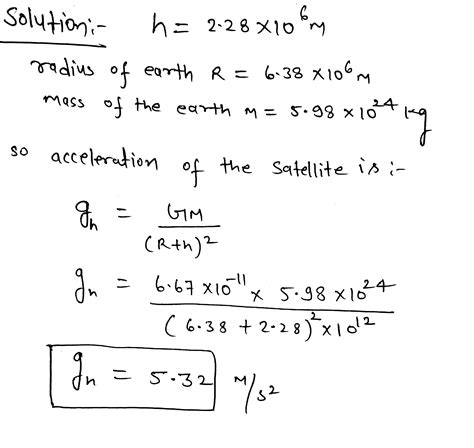 Solution:- h = 2.28 × 10⁶ m
radius of earth R = 6.38 × 10⁶ m
mass of the earth M = 5.98 × 10²⁴ kg
so acceleration of the satellite is :-
gₕ = GM / (R+h)²
gₕ = 6.67 × 10⁻¹¹ × 5.98 × 10²⁴ / (6.38 + 2.28)² × 10¹²
gₕ = 5.32 m/s²